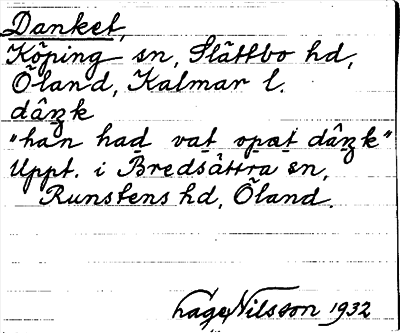 Danket,
Köping sn, Slättbo hd,
Öland, Kalmar l.
dâŋk
"han had vat opæt dâŋk"
Uppt. i Bredsättra sn,
Runstens hd, Öland.
Lage Nilsson 1932